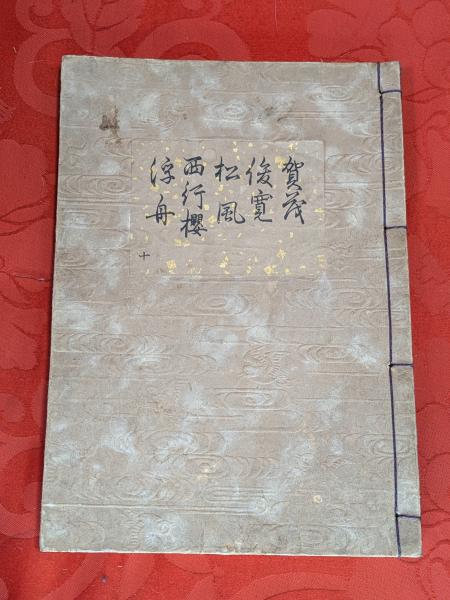 賀茂
俊寛
松風
西行櫻
浮舟
十